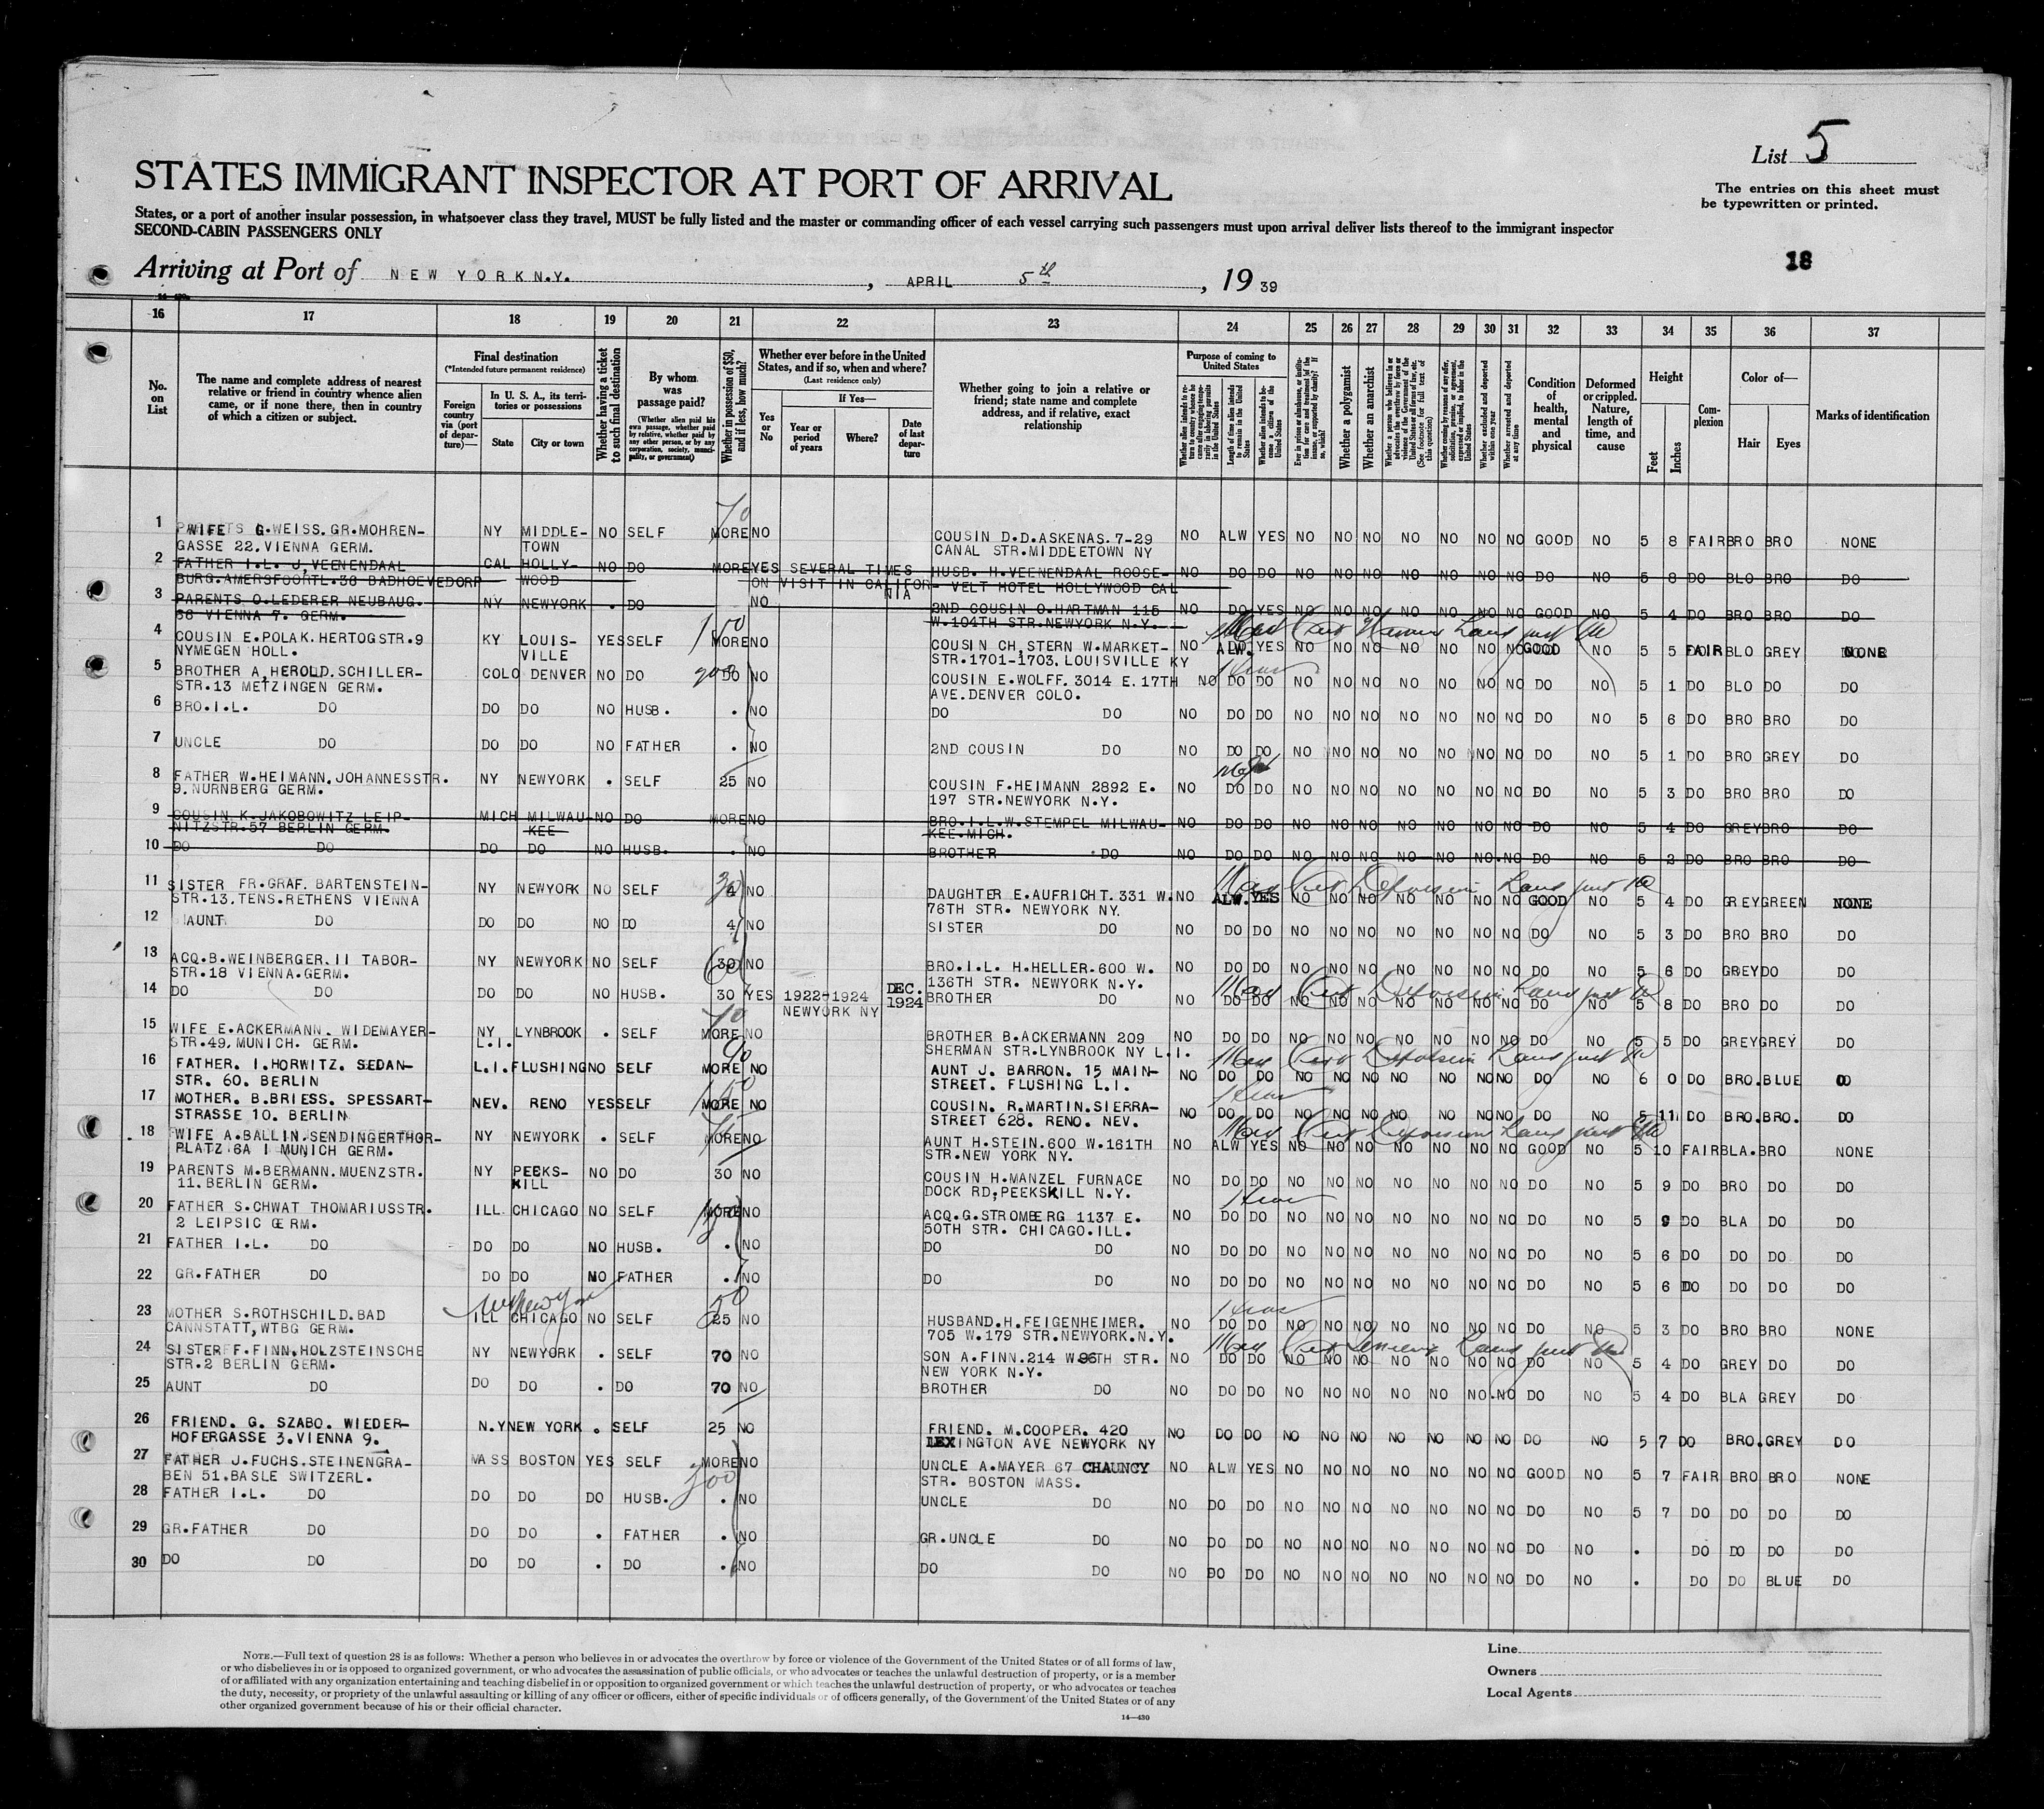 List 5
STATES IMMIGRANT INSPECTOR AT PORT OF ARRIVAL
The entries on this sheet must
be typewritten or printed.
States, or a port of another insular possession, in whatsoever class they travel, MUST be fully listed and the master or commanding officer of each vessel carrying such passengers must upon arrival deliver lists thereof to the immigrant inspector
SECOND-CABIN PASSENGERS ONLY
18
Arriving at Port of NEW YORK N.Y. , APRIL 5th , 19 39
16 17 18 19 20 21 22 23 24 25 26 27 28 29 30 31 32 33 34 35 36 37
No. on List
The name and complete address of nearest relative or friend in country whence alien came, or if none there, then in country of which a citizen or subject.
Final destination
(*Intended future permanent residence)
Foreign country via (port of departure)—
In U. S. A., its territories or possessions
State
City or town
Whether having a ticket to such final destination
By whom was passage paid?
(Whether alien paid his own passage, whether paid by relative, whether paid by any other person, or by any corporation, society, municipality, or government)
Whether in possession of $50, and if less, how much?
Whether ever before in the United States, and if so, when and where?
(Last residence only)
If Yes—
Yes or No
Year or period of years
Where?
Date of last departure
Whether going to join a relative or friend; state name and complete address, and if relative, exact relationship
Purpose of coming to United States
Length of time alien intends to remain in the United States
Whether alien intends to become a citizen of the United States
Whether a polygamist
Whether an anarchist
Whether excluded and deported within one year
Whether arrested and deported at any time
Condition of health, mental and physical
Deformed or crippled. Nature, length of time, and cause
Height
Feet
Inches
Complexion
Color of—
Hair
Eyes
Marks of identification
1 WIFE G.WEISS.GR.MOHREN- NY MIDDLE- NO SELF 70 MORE NO COUSIN D.D.ASKENAS.7-29 NO ALW YES NO NO NO NO NO NO NO GOOD NO 5 8 FAIR BRO BRO NONE
GASSE 22.VIENNA GERM. TOWN CANAL STR.MIDDLETOWN NY
2 FATHER I.L. J.VEENENDAAL CAL HOLLY- NO DO MORE YES SEVERAL TIMES HUSB. H.VEENENDAAL ROOSE- NO DO DO NO NO NO NO NO NO NO DO NO 5 8 DO BLO BRO DO
BURG.AMERSFOORTL.36 BADHOEVEDORP WOOD ON VISIT IN CALIFORNIA VELT HOTEL HOLLYWOOD CAL
3 PARENTS O.LEDERER NEUBAUG. NY NEWYORK . DO NO 2ND COUSIN O.HARTMAN 115 NO DO YES NO NO NO NO NO NO NO GOOD NO 5 4 DO BRO BRO DO
36 VIENNA 7. GERM. W.104TH STR.NEWYORK N.Y.
4 COUSIN E.POLAK.HERTOGSTR.9 KY LOUIS- YES SELF 150 MORE NO COUSIN CH.STERN W.MARKET- NO ALW. YES NO NO NO NO NO NO NO GOOD NO 5 5 FAIR BLO GREY NONE
NYMEGEN HOLL. VILLE STR.1701-1703.LOUISVILLE KY
5 BROTHER A.HEROLD.SCHILLER- COLO DENVER NO DO 200 DO NO COUSIN E.WOLFF.3014 E.17TH NO DO DO NO NO NO NO NO NO NO DO NO 5 1 DO BLO DO DO
STR.13 METZINGEN GERM. AVE.DENVER COLO.
6 BRO.I.L. DO DO DO NO HUSB. . NO DO DO NO DO DO NO NO NO NO NO NO NO DO NO 5 6 DO BRO BRO DO
7 UNCLE DO DO DO NO FATHER . NO 2ND COUSIN DO NO DO DO NO NO NO NO NO NO NO DO NO 5 1 DO BRO GREY DO
8 FATHER W.HEIMANN.JOHANNESSTR. NY NEWYORK . SELF 25 NO COUSIN F.HEIMANN 2892 E. NO DO DO NO NO NO NO NO NO NO DO NO 5 3 DO BRO BRO DO
9.NURNBERG GERM. 197 STR.NEWYORK N.Y.
9 COUSIN K.JAKOBOWITZ LEIP- MICH MILWAU- NO DO MORE NO BRO.I.L.W.STEMPEL MILWAU- NO DO DO NO NO NO NO NO NO NO DO NO 5 4 DO GREY BRO DO
NITZSTR.57 BERLIN GERM. KEE KEE.MICH.
10 DO DO DO DO NO HUSB. . NO BROTHER DO NO DO DO NO NO NO NO NO NO NO DO NO 5 2 DO BRO BRO DO
11 SISTER FR.GRAF. BARTENSTEIN- NY NEWYORK NO SELF 4 NO DAUGHTER E.AUFRICHT.331 W. NO ALW. YES NO NO NO NO NO NO NO GOOD NO 5 4 DO GREY GREEN NONE
STR.13.TENS.RETHENS VIENNA 76TH STR. NEWYORK NY.
12 AUNT DO DO DO NO DO 4 NO SISTER DO NO DO DO NO NO NO NO NO NO NO DO NO 5 3 DO BRO BRO DO
13 ACQ.B.WEINBERGER.II TABOR- NY NEWYORK NO SELF 30 NO BRO.I.L. H.HELLER.600 W. NO DO DO NO NO NO NO NO NO NO DO NO 5 6 DO GREY DO DO
STR.18 VIENNA.GERM. 136TH STR. NEWYORK N.Y.
14 DO DO DO DO NO HUSB. 30 YES 1922-1924 NEWYORK NY DEC. 1924 BROTHER DO NO DO DO NO NO NO NO NO NO NO DO NO 5 8 DO BRO DO DO
15 WIFE E.ACKERMANN. WIDEMAYER- NY L.I. LYNBROOK . SELF 70 MORE NO BROTHER B.ACKERMANN 209 NO DO DO NO NO NO NO NO NO NO DO NO 5 5 DO GREY GREY DO
STR.49.MUNICH. GERM. SHERMAN STR.LYNBROOK NY L.I.
16 FATHER. I.HORWITZ. SEDAN- L.I. FLUSHING NO SELF 90 MORE NO AUNT J. BARRON. 15 MAIN- NO DO DO NO NO NO NO NO NO NO DO NO 6 0 DO BRO. BLUE DO
STR. 60. BERLIN STREET. FLUSHING L.I.
17 MOTHER. B.BRIESS. SPESSART- NEV. RENO YES SELF 150 MORE NO COUSIN. R.MARTIN.SIERRA- NO DO DO NO NO NO NO NO NO NO DO NO 5 11 DO BRO. BRO. DO
STRASSE 10. BERLIN STREET 628. RENO. NEV.
18 WIFE A.BALLIN.SENDINGERTHOR- NY NEWYORK . SELF MORE NO AUNT H.STEIN.600 W.161TH NO ALW YES NO NO NO NO NO NO NO GOOD NO 5 10 FAIR BLA. BRO NONE
PLATZ 6A I MUNICH GERM. STR.NEW YORK NY.
19 PARENTS M.BERMANN.MUENZSTR. NY PEEKS- NO DO 30 NO COUSIN H.MANZEL FURNACE NO DO DO NO NO NO NO NO NO NO DO NO 5 9 DO BRO DO DO
11.BERLIN GERM. KILL DOCK RD,PEEKSKILL N.Y.
20 FATHER S.CHWAT THOMARIUSSTR. ILL CHICAGO NO SELF MORE NO ACQ.G.STROMBERG 1137 E. NO DO DO NO NO NO NO NO NO NO DO NO 5 9 DO BLA DO DO
2 LEIPSIC GERM. 50TH STR. CHICAGO.ILL.
21 FATHER I.L. DO DO DO NO HUSB. . NO DO DO NO DO DO NO NO NO NO NO NO NO DO NO 5 6 DO DO DO DO
22 GR.FATHER DO DO DO NO FATHER . NO DO DO NO DO DO NO NO NO NO NO NO NO DO NO 5 6 DO DO DO DO
23 MOTHER S.ROTHSCHILD.BAD ILL CHICAGO NO SELF 50 25 NO HUSBAND.H.FEIGENHEIMER. NO DO DO NO NO NO NO NO NO NO DO NO 5 3 DO BRO BRO NONE
CANNSTATT,WTBG GERM. NY New York 705 W.179 STR.NEWYORK.N.Y.
24 SISTER F.FINN.HOLZSTEINSCHE NY NEWYORK . SELF 70 NO SON A.FINN.214 W.96TH STR. NO DO DO NO NO NO NO NO NO NO DO NO 5 4 DO GREY DO DO
STR.2 BERLIN GERM. NEW YORK N.Y.
25 AUNT DO DO DO . DO 70 NO BROTHER DO NO DO DO NO NO NO NO NO NO NO DO NO 5 4 DO BLA GREY DO
26 FRIEND. G. SZABO. WIEDER- N.Y NEW YORK . SELF 25 NO FRIEND. M.COOPER. 420 NO DO DO NO NO NO NO NO NO NO DO NO 5 7 DO BRO. GREY DO
HOFERGASSE 3.VIENNA 9. LEXINGTON AVE NEWYORK NY
27 FATHER J.FUCHS.STEINENGRA- MASS BOSTON YES SELF MORE NO UNCLE A.MAYER 67 CHAUNCY NO ALW YES NO NO NO NO NO NO NO GOOD NO 5 7 FAIR BRO BRO NONE
BEN 51.BASLE SWITZERL. 300 STR. BOSTON MASS.
28 FATHER I.L. DO DO DO DO HUSB. . NO UNCLE DO NO DO DO NO NO NO NO NO NO NO DO NO 5 7 DO DO DO DO
29 GR.FATHER DO DO DO . FATHER . NO GR.UNCLE DO NO DO DO NO NO NO NO NO NO NO DO NO . DO DO DO DO
30 DO DO DO DO . DO . NO DO DO NO DO DO NO NO NO NO NO NO NO DO NO . DO DO BLUE DO
NOTE.—Full text of question 28 is as follows: Whether a person who believes in or advocates the overthrow by force or violence of the Government of the United States or of all forms of law,
or who disbelieves in or is opposed to organized government, or who advocates the assassination of public officials, or who advocates or teaches the unlawful destruction of property, or is a member
of or affiliated with any organization entertaining and teaching disbelief in or opposition to organized government or which teaches the unlawful destruction of property, or who advocates or teaches
the duty, necessity, or propriety of the unlawful assaulting or killing of any officer or officers, either of specific individuals or of officers generally, of the Government of the United States or of any
other organized government because of his or their official character.
14—430
Line
Owners
Local Agents